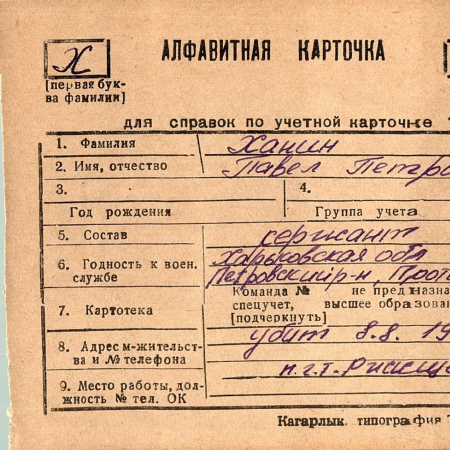 Х
АЛФАВИТНАЯ КАРТОЧКА
[первая бук-
ва фамилии]
для справок по учетной карточке
1. Фамилия Ханин
2. Имя, отчество Павел Петро
3. 4.
Год рождения Группа учета
5. Состав сержант
6. Годность к воен. Харьковская обл
службе Петровский р-н, Прото
Команда № не предназна
7. Картотека спецучет, высшее образован
[подчеркнуть]
убит 8.8.19
8. Адрес м-жительст-
ва и № телефона н.г.т.
9. Место работы, дол-
жность № тел. ОК
Кагарлык. типография